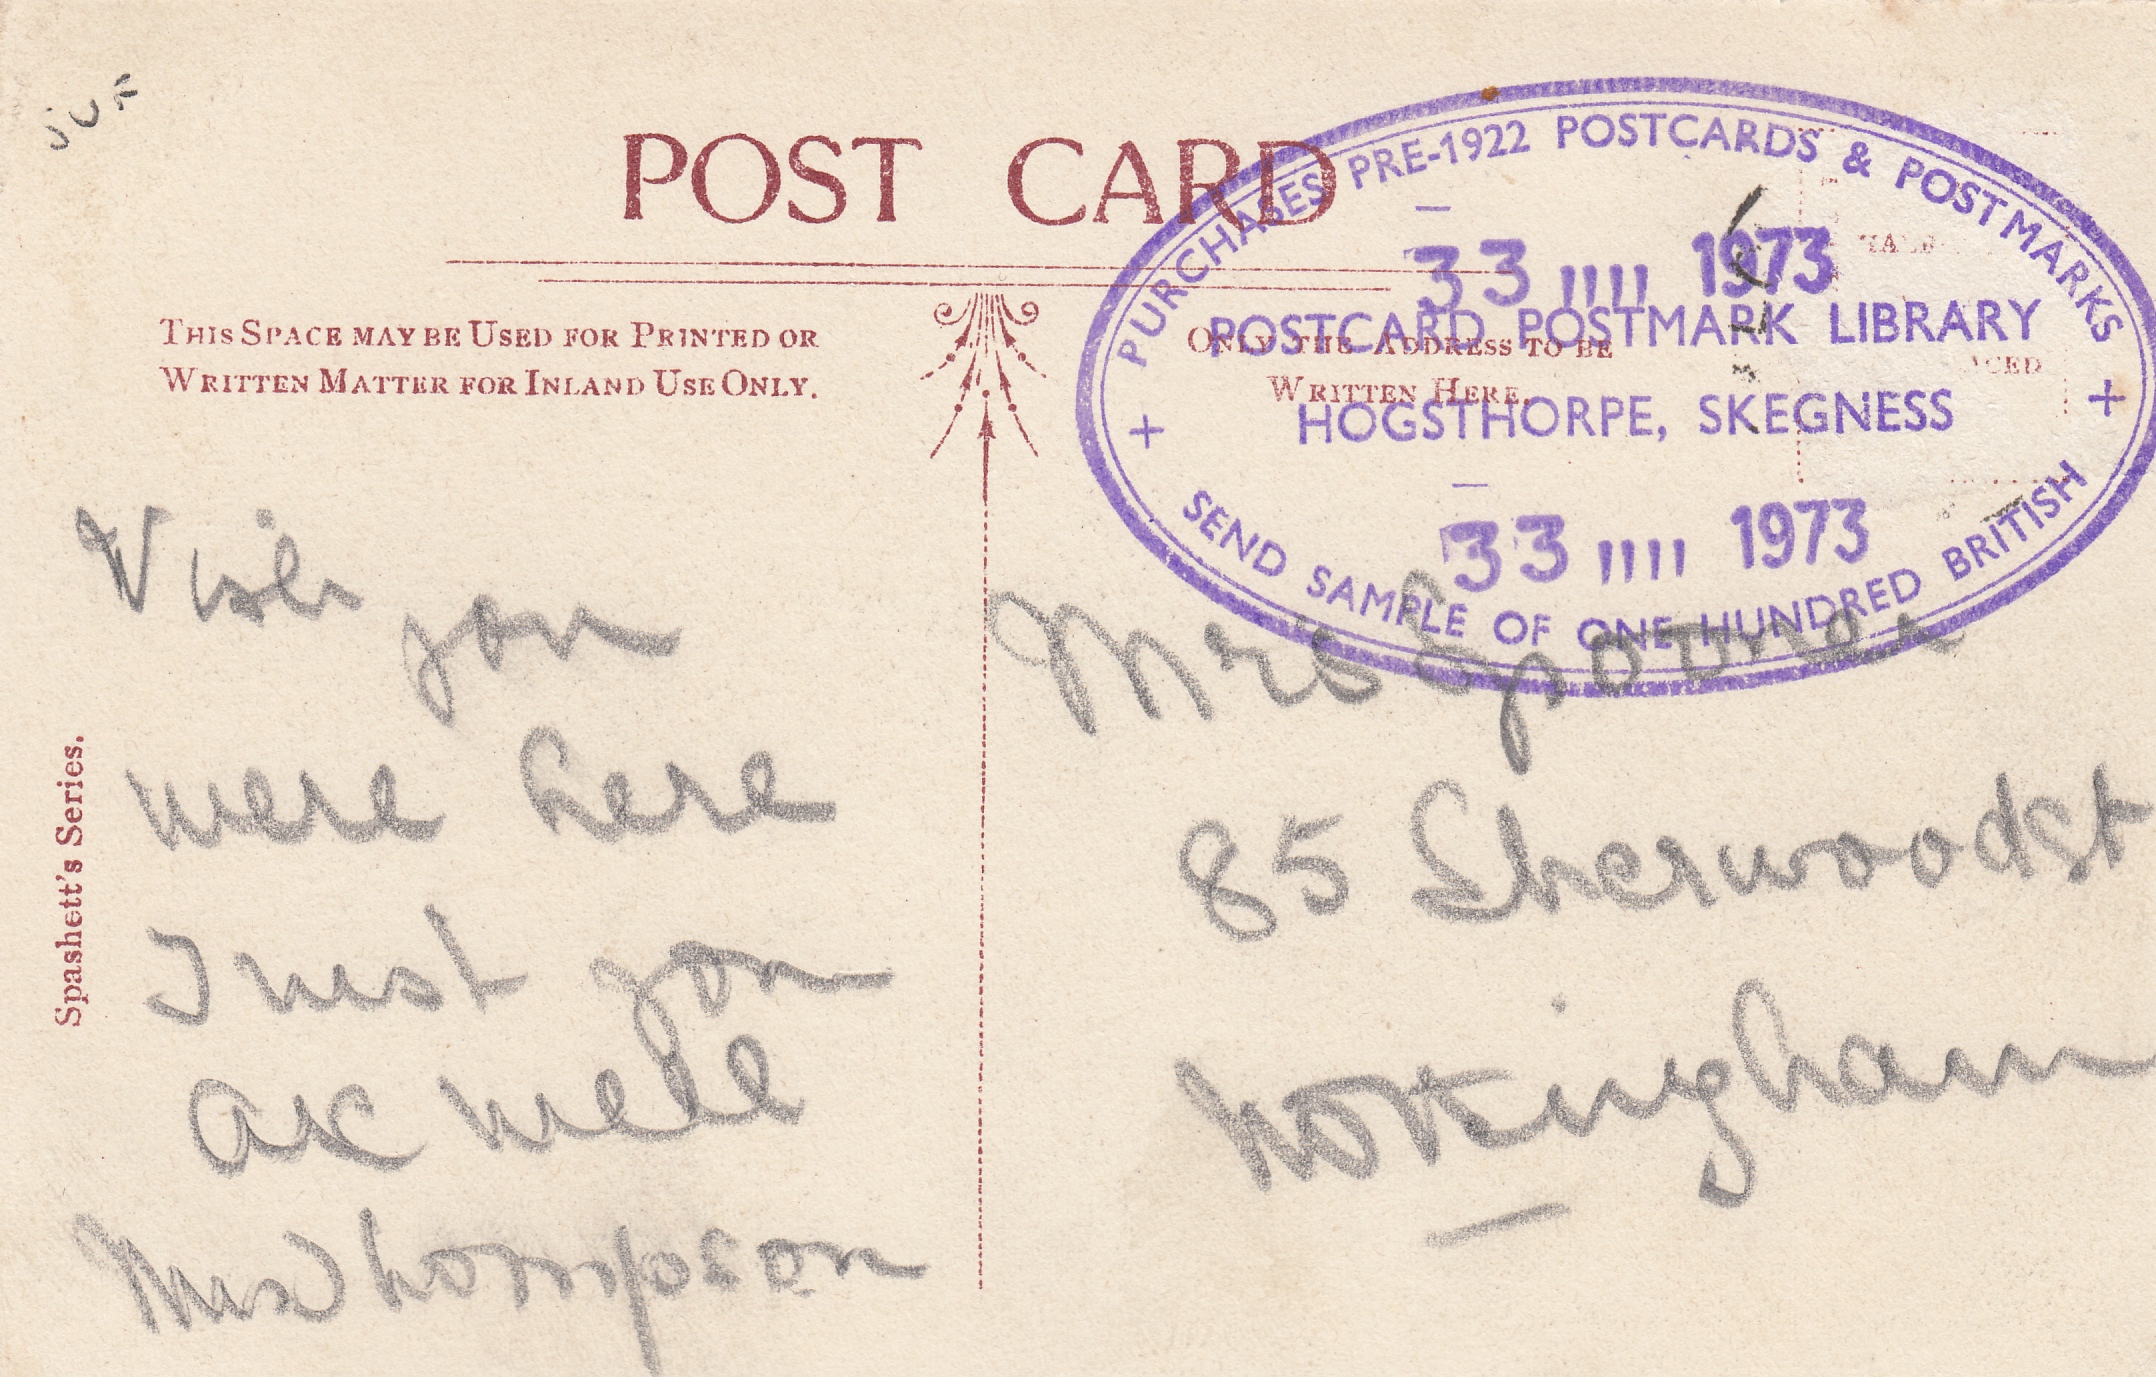 SUF
POST CARD
THIS SPACE MAY BE USED FOR PRINTED OR
WRITTEN MATTER FOR INLAND USE ONLY.
ONLY THE ADDRESS TO BE
WRITTEN HERE.
PURCHASES PRE-1922 POSTCARDS & POSTMARKS
33 1973
POSTCARD POSTMARK LIBRARY
HOGSTHORPE, SKEGNESS
33 1973
SEND SAMPLE OF ONE HUNDRED BRITISH
Spashett's Series.
Wish you
were here
Trust you
are well
Mrs Thompson
Mrs
85 Sherwood St
Nottingham